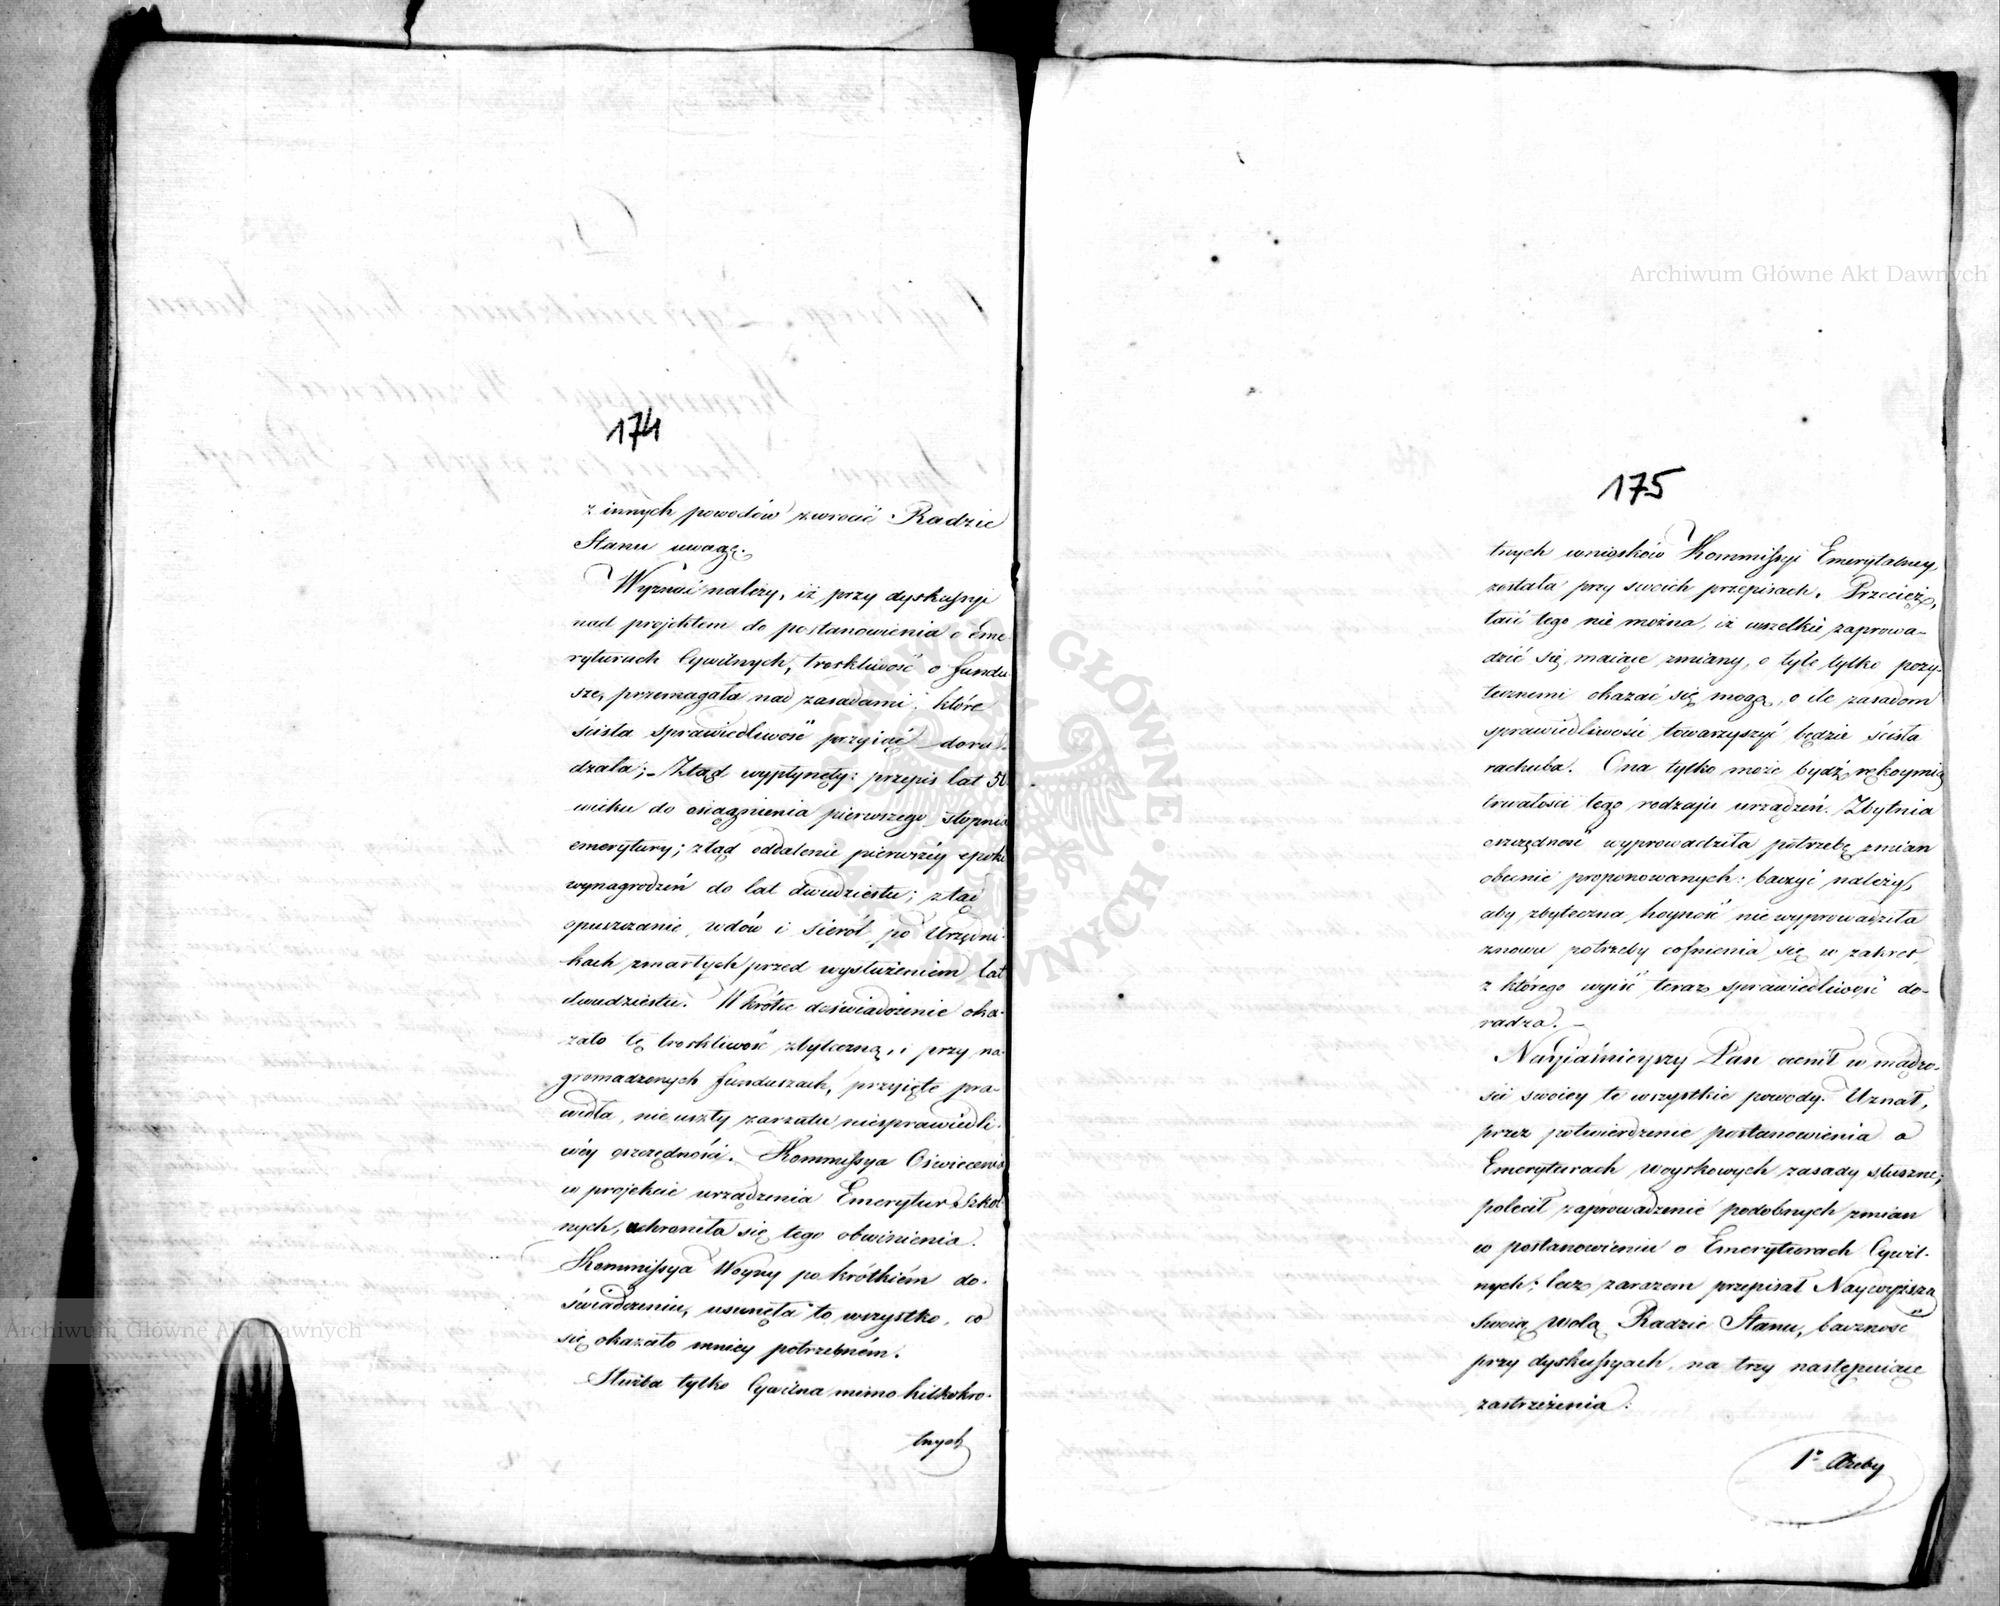 174
z innych powodów zwrócić Radzie
Stanu uwagę.
Wyznać należy, iż przy dyskussyi
nad projektem do postanowienia o eme
ryturach Cywilnych, troskliwość o fundu
sze, przemagała nad zasadami, które
ścisła sprawiedliwość przyjąć dora-
dzała; Ztąd wypłynęły: przepis lat 50
wieku do osiągnienia pierwszego stopnia
emerytury; ztąd oddalenie pierwszéy epoki
wynagrodzeń do lat dwudziestu; ztąd
opuszczanie wdów i sierót po Urzędni-
kach zmarłych przed wysłużeniem lat
dwudziestu. Wkrótce doświadczenie oka-
zało tę troskliwość zbyteczną, i przy na-
gromadzonych funduszach, przyięte pra-
widła, nie uszły zarzutu niesprawiedli-
wéy oszczędności. Kommissya Oświecenia
w projekcie urządzenia Emerytur Szkol-
nych, uchroniła się tego obwinienia.
Kommissya Woyny po krótkiém do-
świadczeniu, usunęła to wszystko, co
się okazało mniey potrzebném.
Służba tylko Cywilna mimo kilkokro-
tnych
175
tnych wniosków Kommissyi Emerytalney,
została przy swoich przepisach. Przecież,
taić tego nie można, iż wszelkie zaprowa-
dzić się maiące zmiany, o tyle tylko poży-
tecznemi okazać się mogą, o ile zasadom
sprawiedliwości towarzyszyć będzie ścisła
rachuba. Ona tylko może bydź rękoymią
trwałości tego rodzaju urządzeń. Zbytnia
oszczędność wyprowadziła potrzebę zmian
obecnie proponowanych: baczyć należy,
aby zbyteczna hoyność nie wyprowadziła
znowu potrzeby cofnienia się w zakres,
z którego wyiść teraz sprawiedliwość do-
radza.
Nayjaśnieyszy Pan ocenił w mądro-
ści swoiey te wszystkie powody. Uznał,
przez potwierdzenie postanowienia o
Emeryturach woyskowych zasady słuszne;
polecił zaprowadzenie podobnych zmian
w postanowieniu o Emeryturach Cywil-
nych; lecz zarazem przepisał Naywyższą
Swoią Wolą Radzie Stanu, baczność
przy dyskussyach, na trzy następuiące
zastrzeżenia:
1° Ażeby
Archiwum Główne Akt Dawnych
Archiwum Główne Akt Dawnych